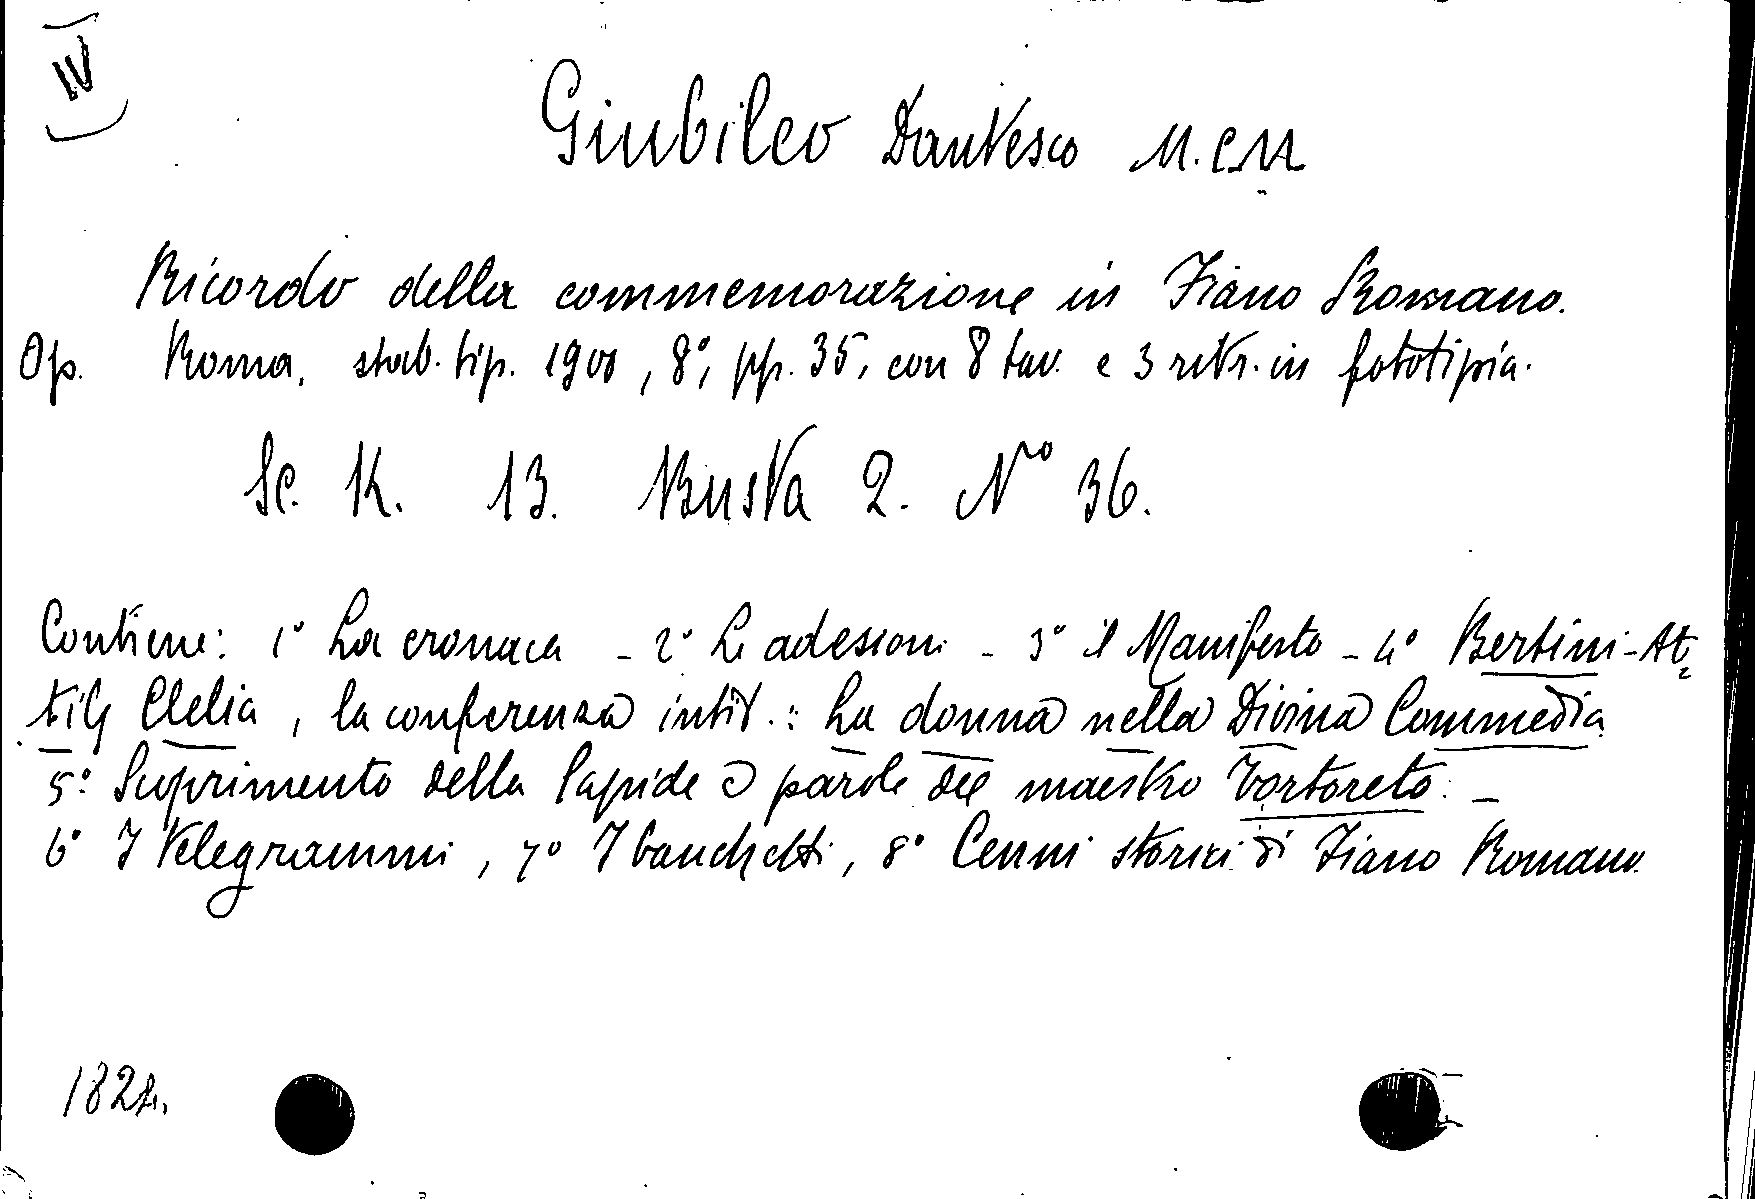 IV
Giubileo Dantesco M.CM
Ricordo della commemorazione in Fiano Romano.
Op. Roma, stab. tip. 1900, 8°, pp. 35, con 8 tav. e 3 ritr. in fototipia.
Sc. K. 13. Busta 2. N° 36.
Contiene: 1° La cronaca - 2° Le adesioni - 3° il Manifesto - 4° Bertini-At-
tilj Clelia, la conferenza intit.: La donna nella Divina Commedia
5° Scoprimento della lapide e parole del maestro Tortoreto. -
6° I telegrammi, 7° I banchetti, 8° Cenni storici di Fiano Romano.